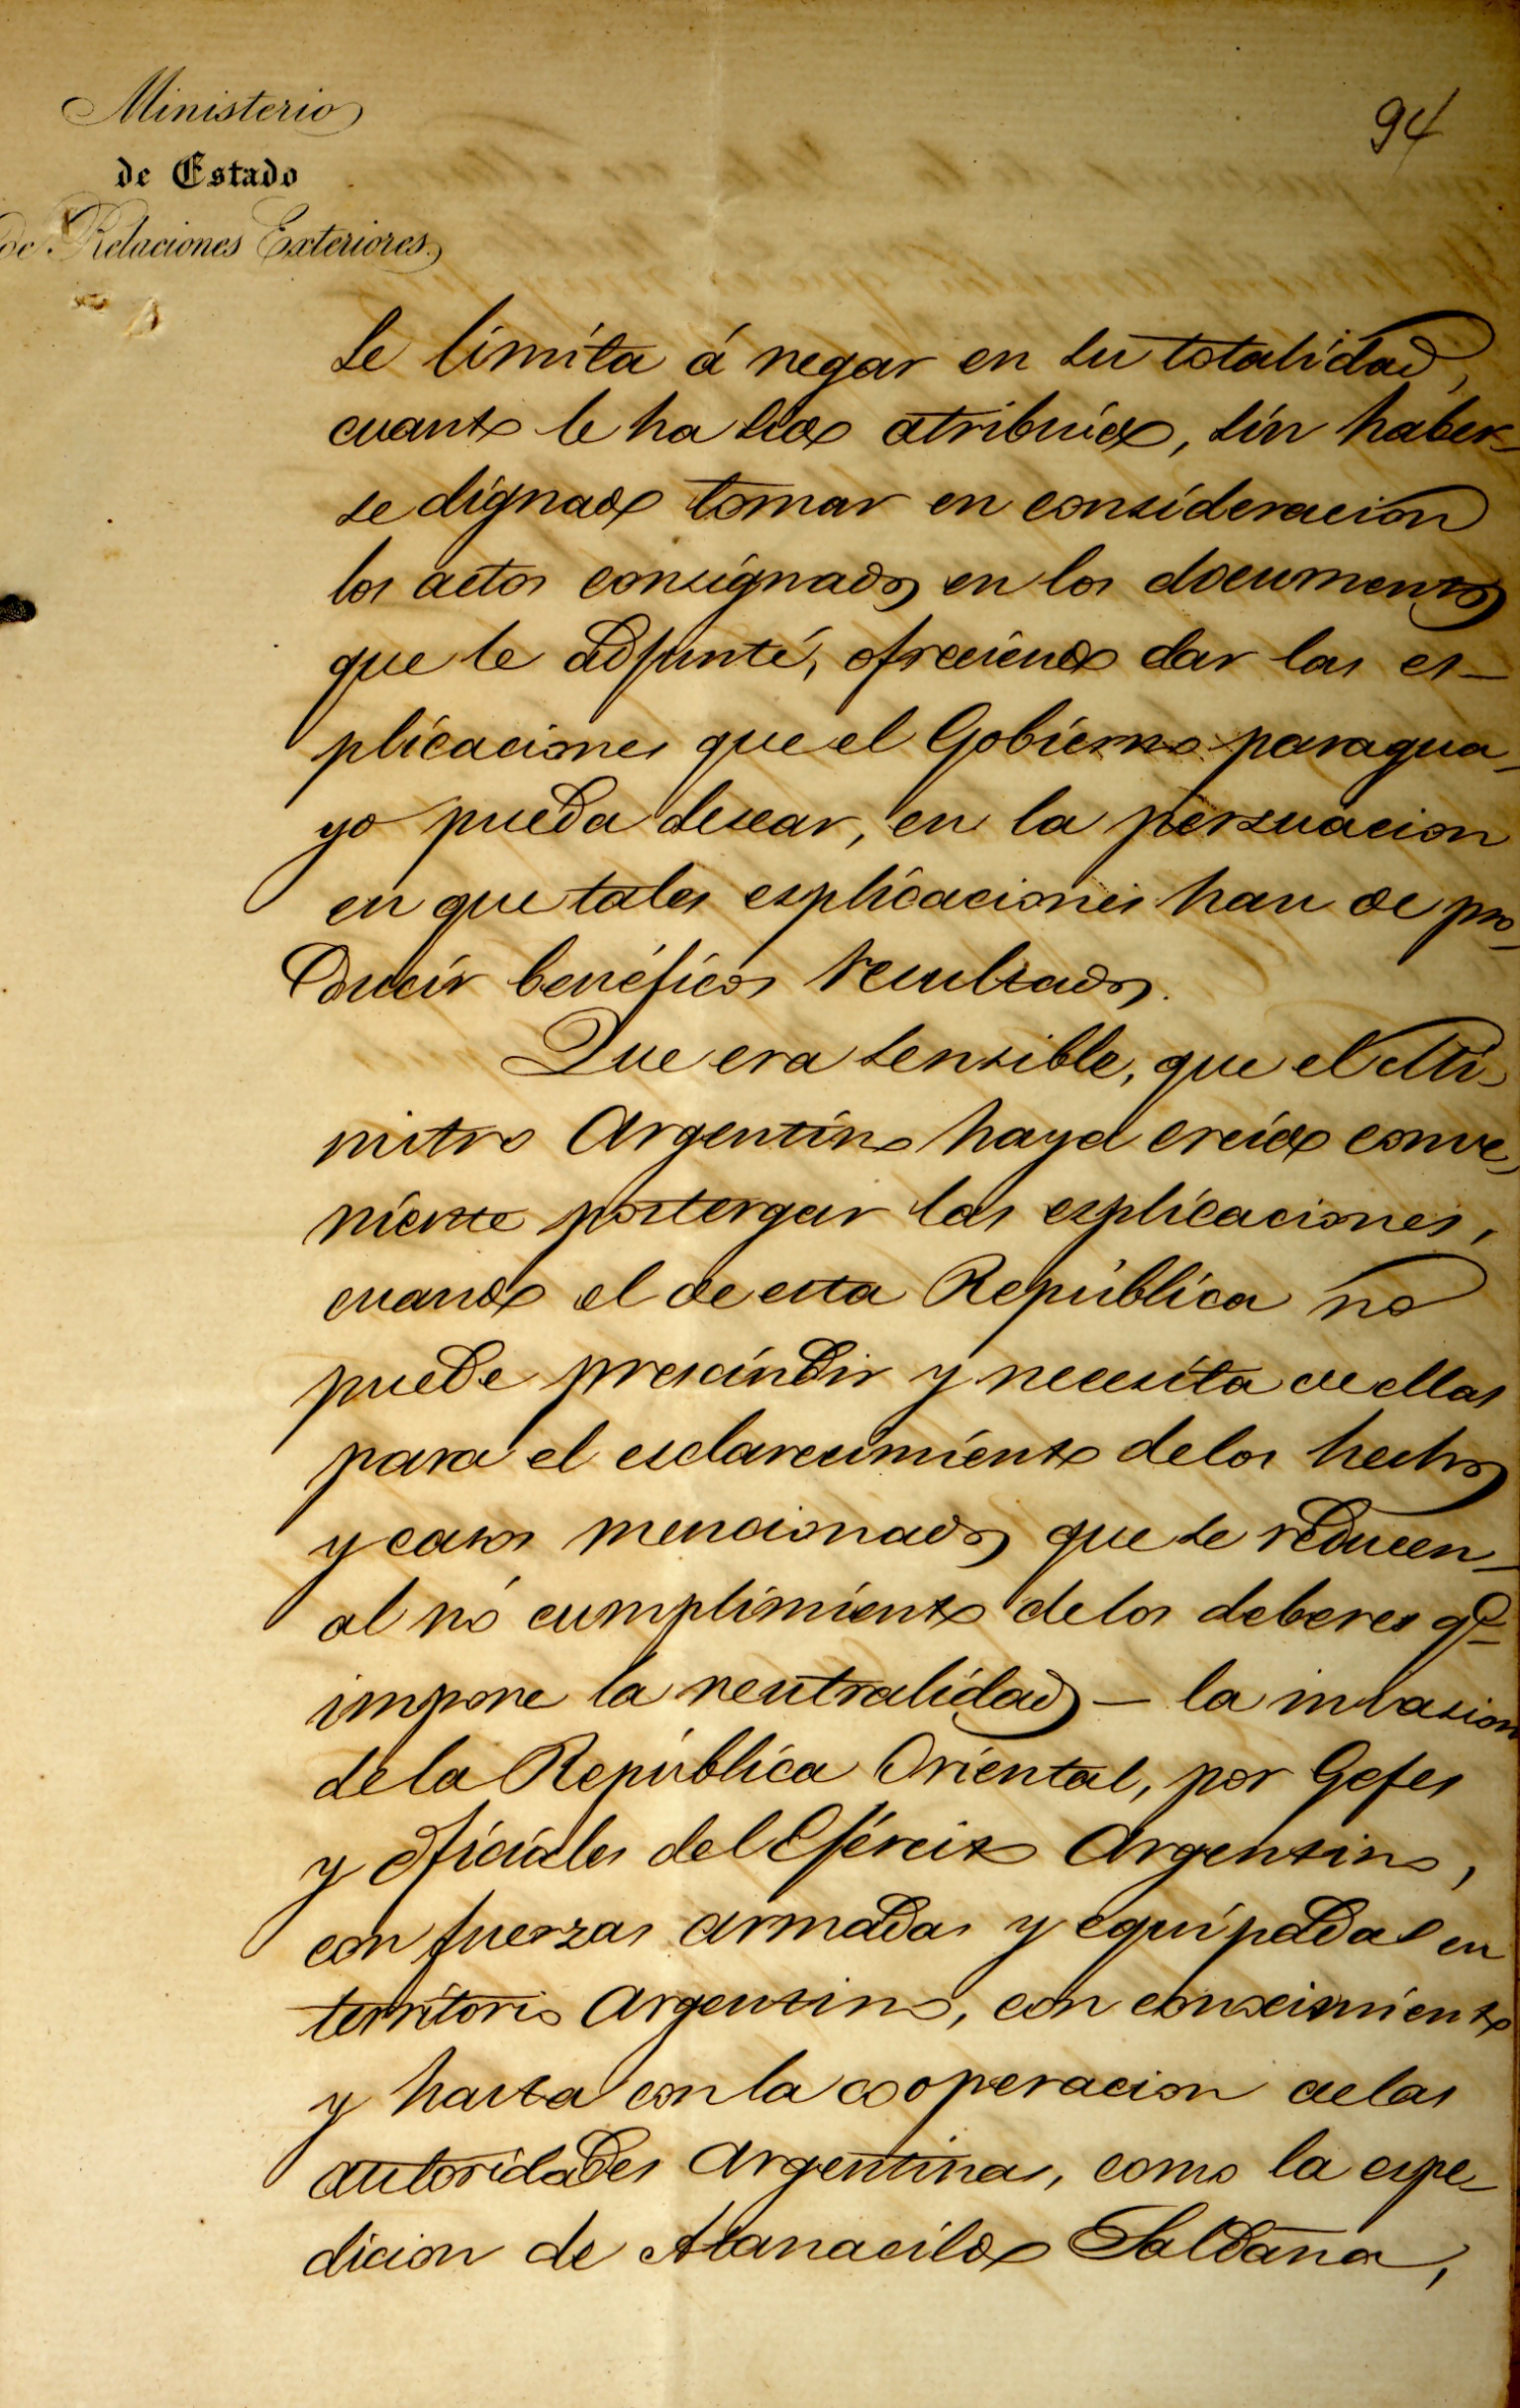 Ministerio
94
de Estado
de Relaciones Exteriores.
se limíta á negar en su totalidad,
cuanto le ha sido atribuído, sín haber-
se dígnado tomar en consíderacion
los actos consignados en los documentos
que le adjunté, ofreciendo dar las es-
plícaciones que el Gobierno paragua-
yo pueda desear, en la persuacion
en que tales esplicaciones han de pro-
ducír benéficos resultados.
Que era sensible, que el Mi-
nistro Argentino haya creído conve-
niente postergar las esplicaciones,
cuando el de esta República no
puede prescíndir y necesíta de ellas
para el esclarecimiento de los hechos
y casos mencionados que se reducen
al nó cumplimiento de los deberes qe
impone la neutralidad — la invasion
de la República Oriental, por Gefes
y Oficiales del Ejército Argentino,
con fuerzas armadas y equipadas en
territorio Argentino, con conocimiento
y hasta con la cooperacion de las
autoridades Argentinas, como la espe-
dicion de Atanacildo Saldaña,